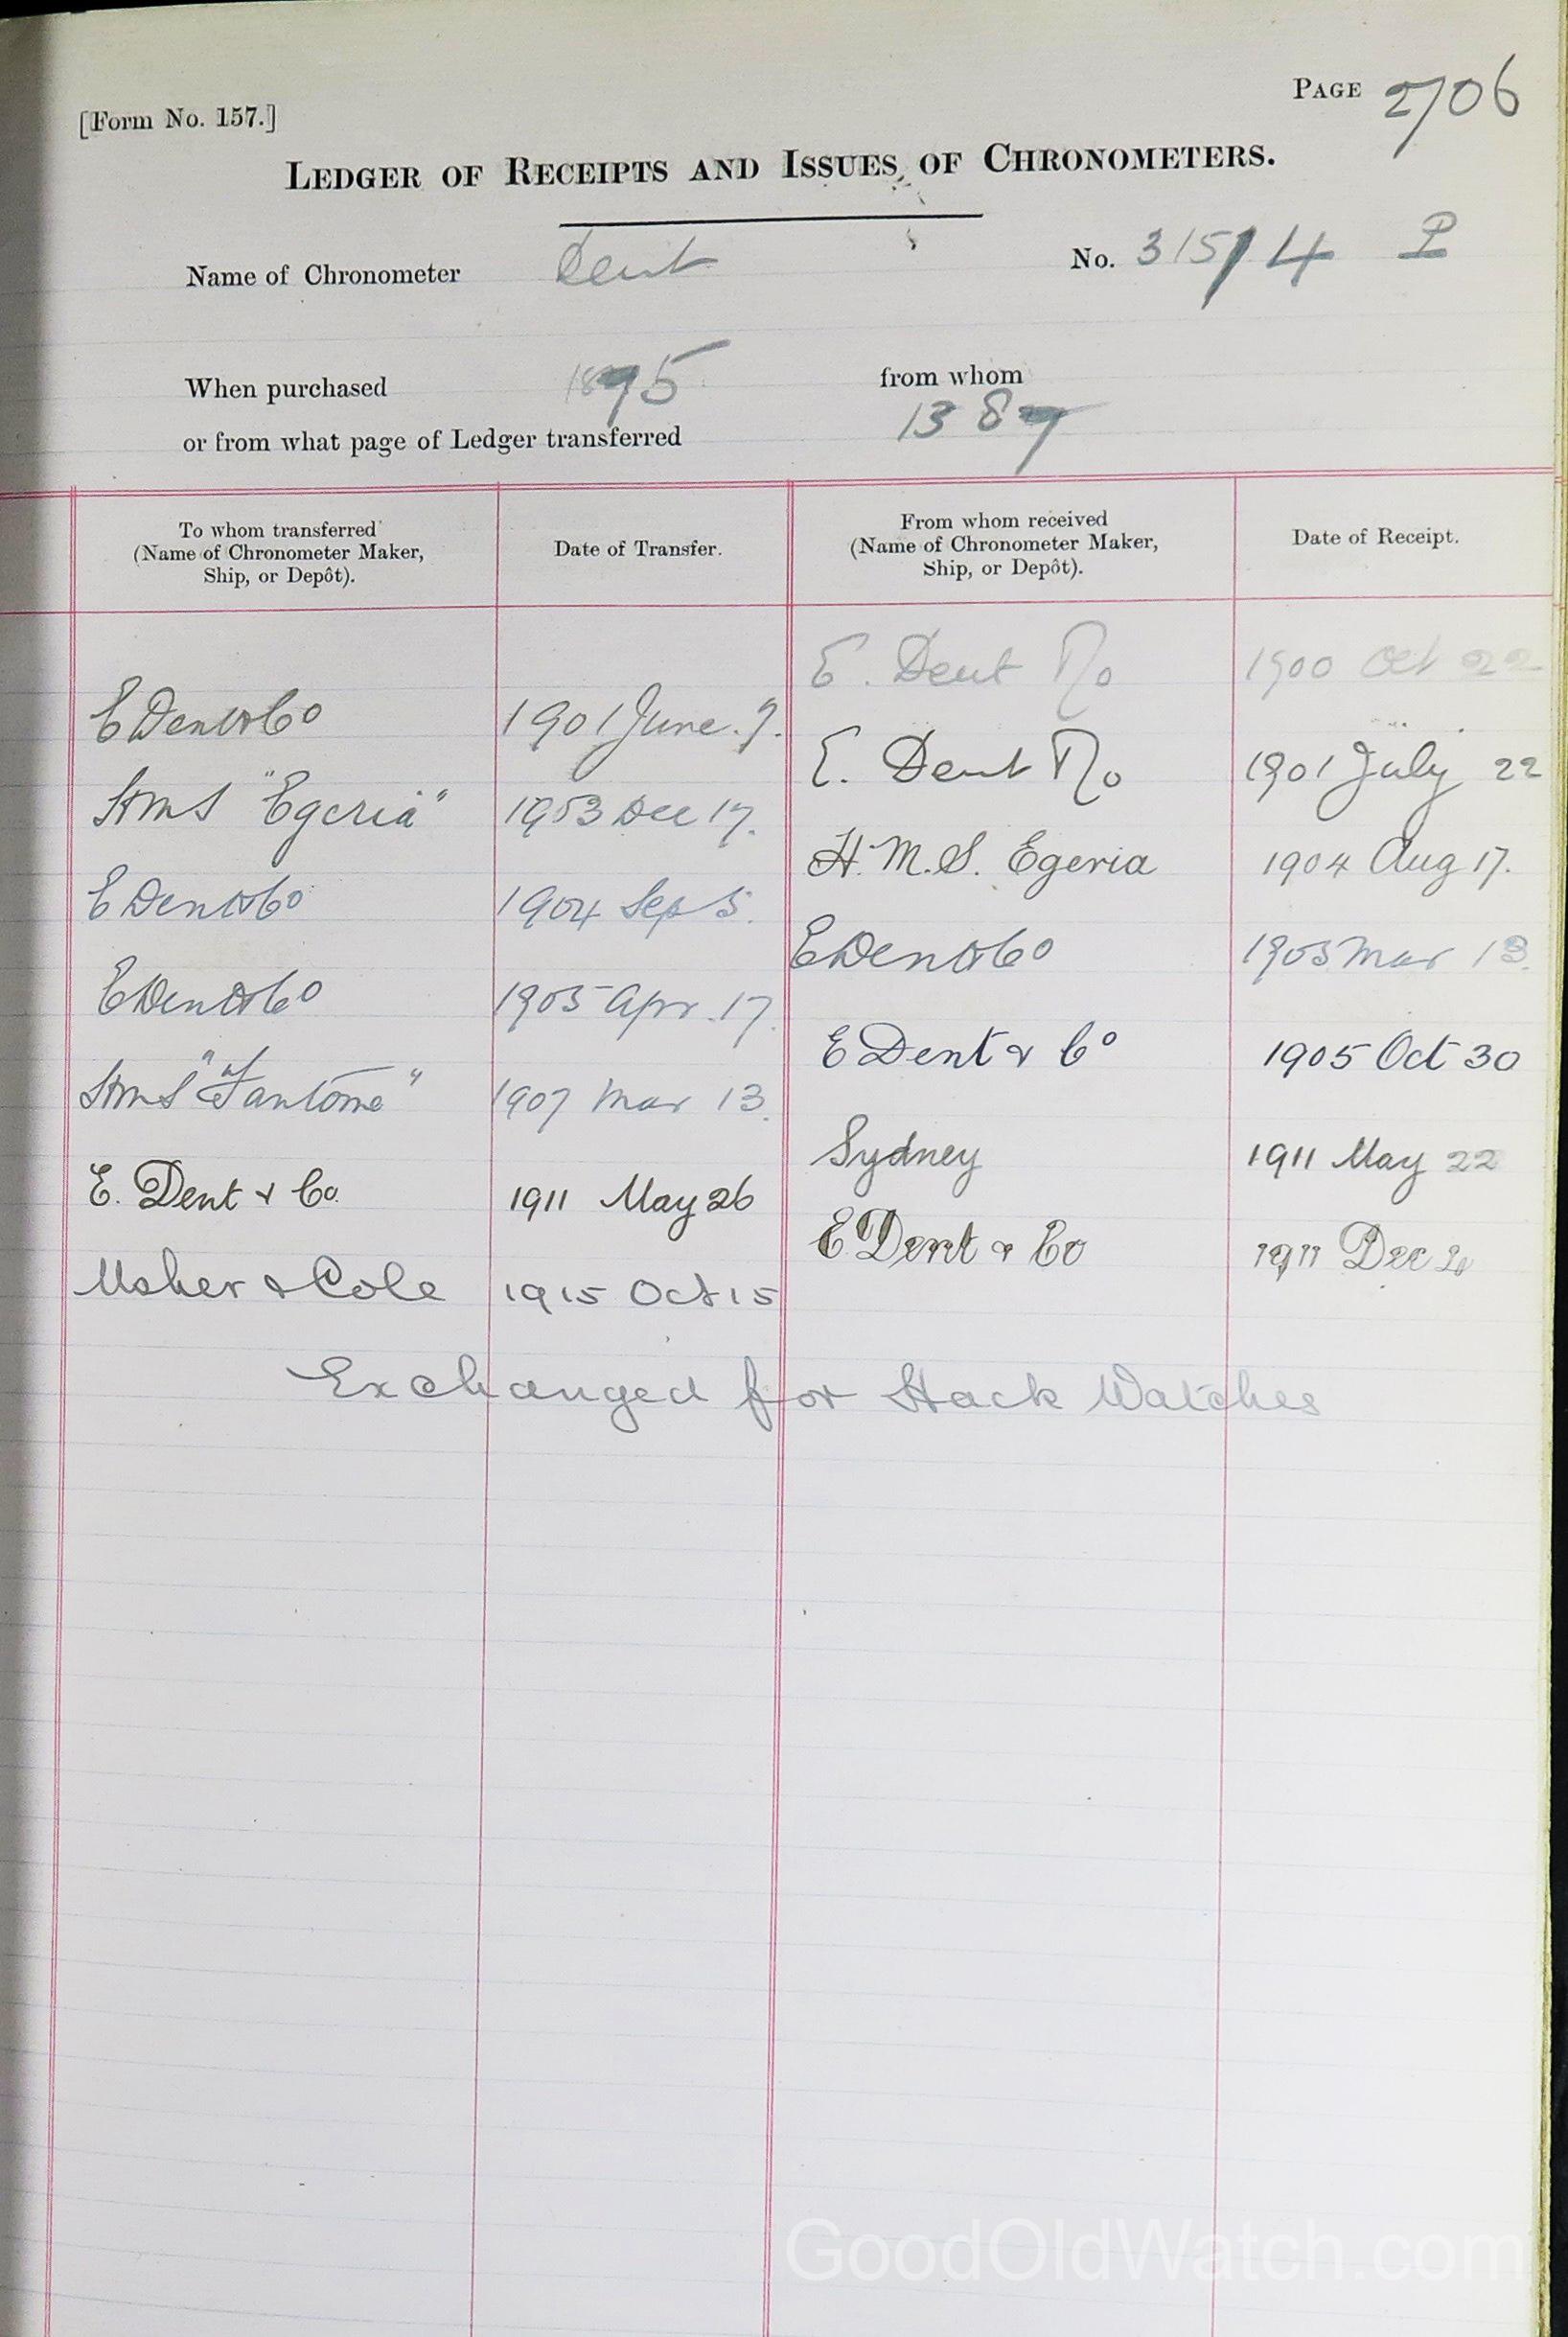 PAGE 2706
[Form No. 157.]
LEDGER OF RECEIPTS AND ISSUES OF CHRONOMETERS.
Name of Chronometer Dent No. 31514 P
When purchased 1895 from whom
or from what page of Ledger transferred 1387
To whom transferred
(Name of Chronometer Maker,
Ship, or Depôt).
Date of Transfer.
From whom received
(Name of Chronometer Maker,
Ship, or Depôt).
Date of Receipt.
E. Dent & Co 1900 Oct 22
E Dent & Co 1901 June 7.
E. Dent & Co 1901 July 22
HMS "Egeria" 1903 Dec 17.
H.M.S. Egeria 1904 Aug 17.
E Dent & Co 1904 Sep 5.
E Dent & Co 1905 Mar 13.
E Dent & Co 1905 Apr. 17.
E Dent & Co 1905 Oct 30
HMS "Fantome" 1907 Mar 13.
Sydney 1911 May 22
E. Dent & Co. 1911 May 26
E Dent & Co 1911 Dec
Usher & Cole 1915 Oct 15
Exchanged for Hack Watches
GoodOldWatch.com